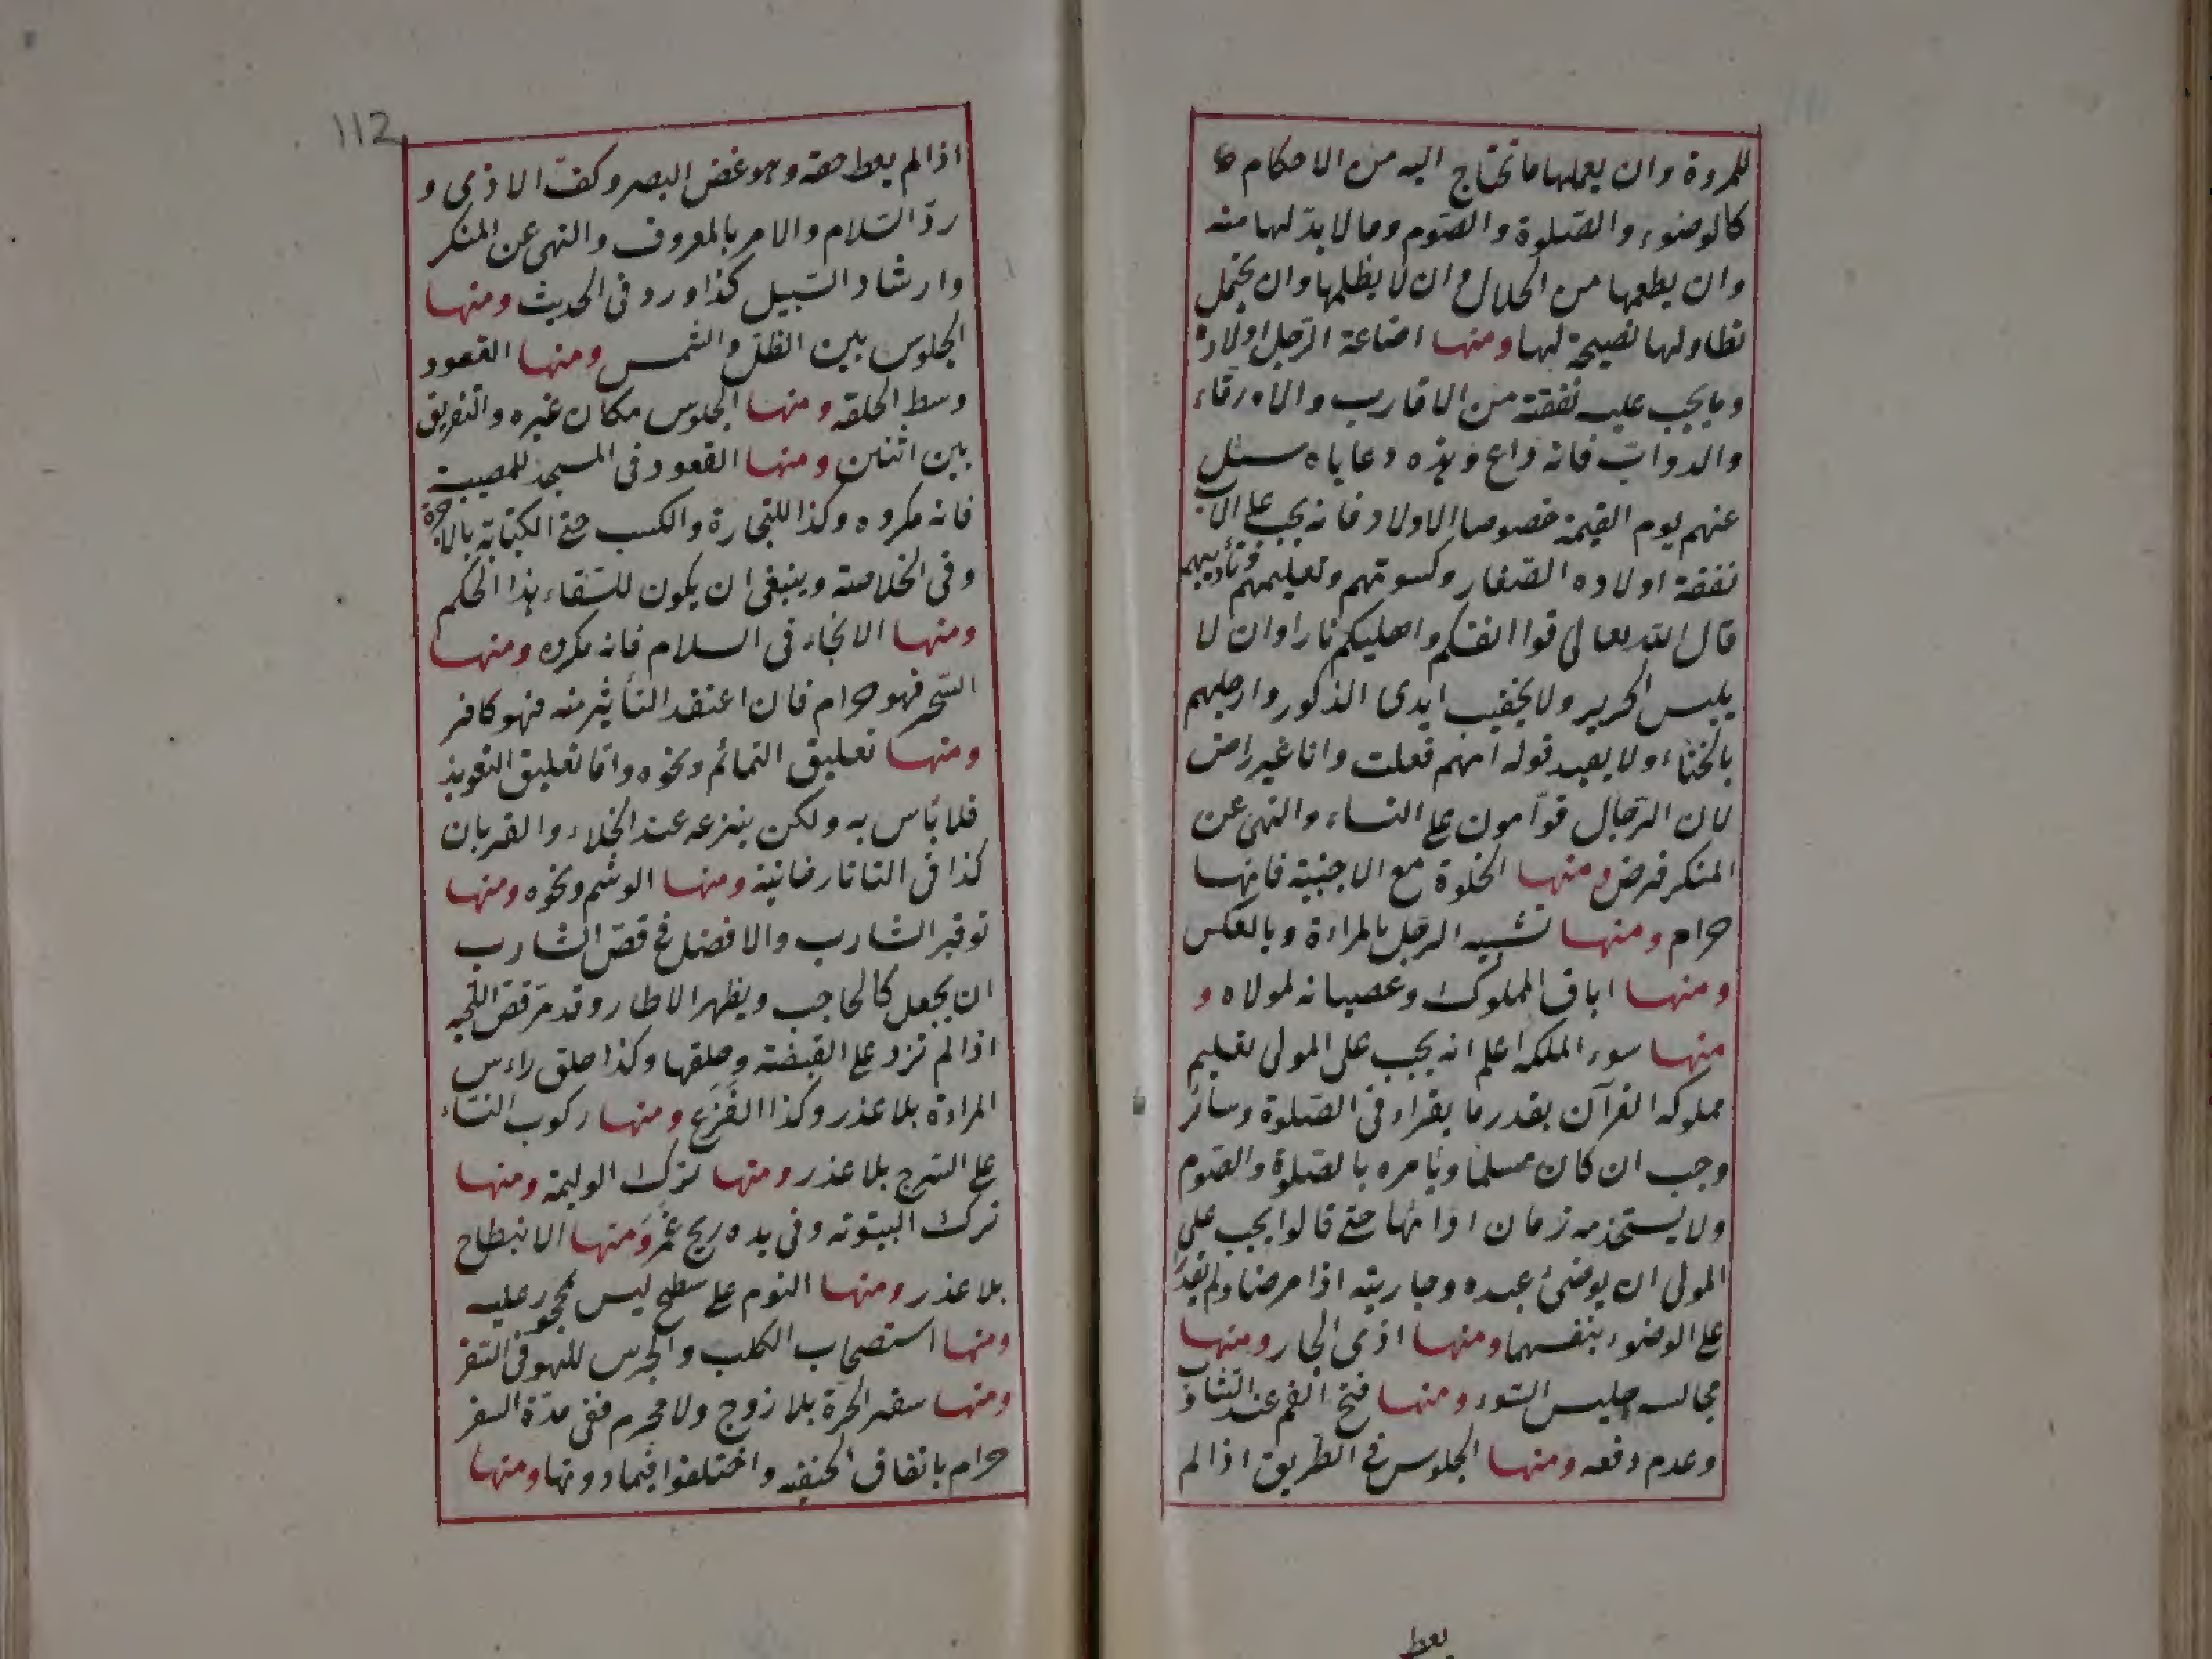 للمروة وان يعلمها ما تحتاج اليه من الاحكام
كالوضوء والصّلوة والصّوم وما لا بدّ لها منه
وان يطعمها من الحلال وان لا يظلمها وان يحتمل
تطاولها نصيحة لها ومنها اضاعة الرّجل اولاده
وما يجب عليه نفقته من الاقارب والارقاء
والدوابّ فانه راع وهذه رعاياه سيئل
عنهم يوم القيمة خصوصا الاولاد فانه يجب على الاب
نفقة اولاده الصّغار وكسوتهم وتعليمهم وتأديبهم
قال الله تعالى قوا انفسكم واهليكم نارا وان لا
يلبس الحرير ولا يخضب ايدى الذكور وارجلهم
بالحناء ولا يفيد قوله امهم فعلت وانا غير راض
لان الرّجال قوّامون على النساء والنهى عن
المنكر فرض ومنها الخلوة مع الاجنبية فانها
حرام ومنها تشبيه الرجل بالمراءة وبالعكس
ومنها اباق المملوك وعصيانه لمولاه و
منها سوء الملكة اعلم انه يجب على المولى تعليم
مملوكه القرآن بقدر ما يقراء فى الصّلوة وسائر
وجب ان كان مسلما ويأمره بالصّلوة والصّوم
ولا يستخدمه زمان ادائها حتى قالوا يجب على
المولى ان يوضئ عبده وجاريته اذا مرضا ولم يقدر
على الوضوء بنفسهما ومنها اذى الجار ومنها
مجالسه جليس السّوء ومنها فتح الفم عند التثاؤب
وعدم دفعه ومنها الجلوس فى الطريق اذا لم
يعط
112
اذا لم يعط حقه وهو غض البصر وكفّ الاذى و
ردّ السّلام والامر بالمعروف والنهى عن المنكر
وارشاد السّبيل كذا ورد فى الحديث ومنها
الجلوس بين الظلّ والشمس ومنها القعود
وسط الحلقه ومنها الجلوس مكان غيره والتفريق
بين اثنين ومنها القعود فى المسجد للمصيبة
فانه مكروه وكذا للتجارة والكسب حتى الكتابة بالاجرة
وفى الخلاصة وينبغى ان يكون للسّقاء هذا الحكم
ومنها الانحناء فى السلام فانه مكروه ومنها
السّحر فهو حرام فان اعتقد التأثير منه فهو كافر
ومنها تعليق التمائم ونحوه وامّا تعليق التعويذ
فلا بأس به ولكن ينزعه عند الخلاء والقربان
كذا فى التاتارخانية ومنها الوشم ونحوه ومنها
توقير الشارب والافضل فى قصّ الشارب
ان يجعل كالحاجب ويظهر الاطار وقد مرّ قصّ اللحية
اذا لم تزد على القبضة وحلقها وكذا حلق راءس
المراءة بلا عذر وكذا القزع ومنها ركوب النساء
على السّرج بلا عذر ومنها ترك الوليمة ومنها
ترك البيتوته وفى يده ريح غمر ومنها الانبطاح
بلا عذر ومنها النوم على سطح ليس بمحجور عليه
ومنها استصحاب الكلب والجرس للهو فى السّفر
ومنها سفر الحرّة بلا زوج ولا محرم ففى مدّة السفر
حرام باتفاق الحنفيه واختلفوا فيما دونها ومنها